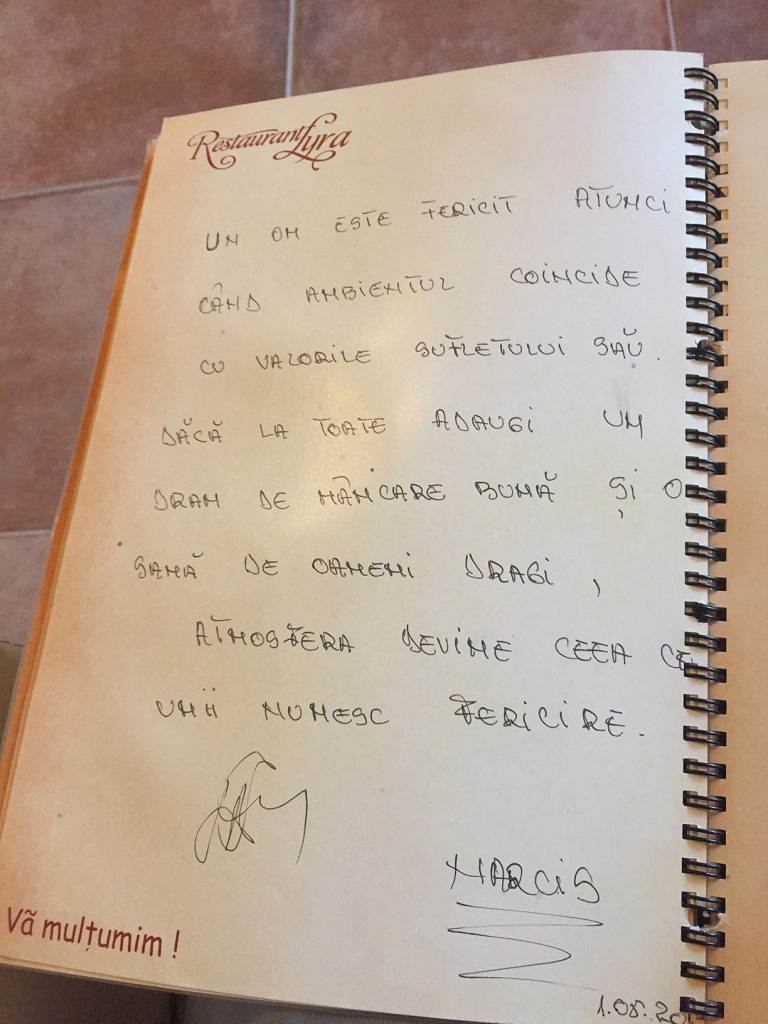 Restaurant Lyra
UN OM ESTE FERICIT ATUNCI
CÂND AMBIENTUL COINCIDE
CU VALORILE SUFLETULUI SĂU.
DĂCĂ LA TOATE ADAUGI UN
DRAM DE MÂNCARE BUNĂ ȘI O
SAMĂ DE OAMENI DRAGI,
ATMOSFERA DEVINE CEEA CE
UNII NUMESC FERICIRE.
NARCIS
Vă mulțumim !